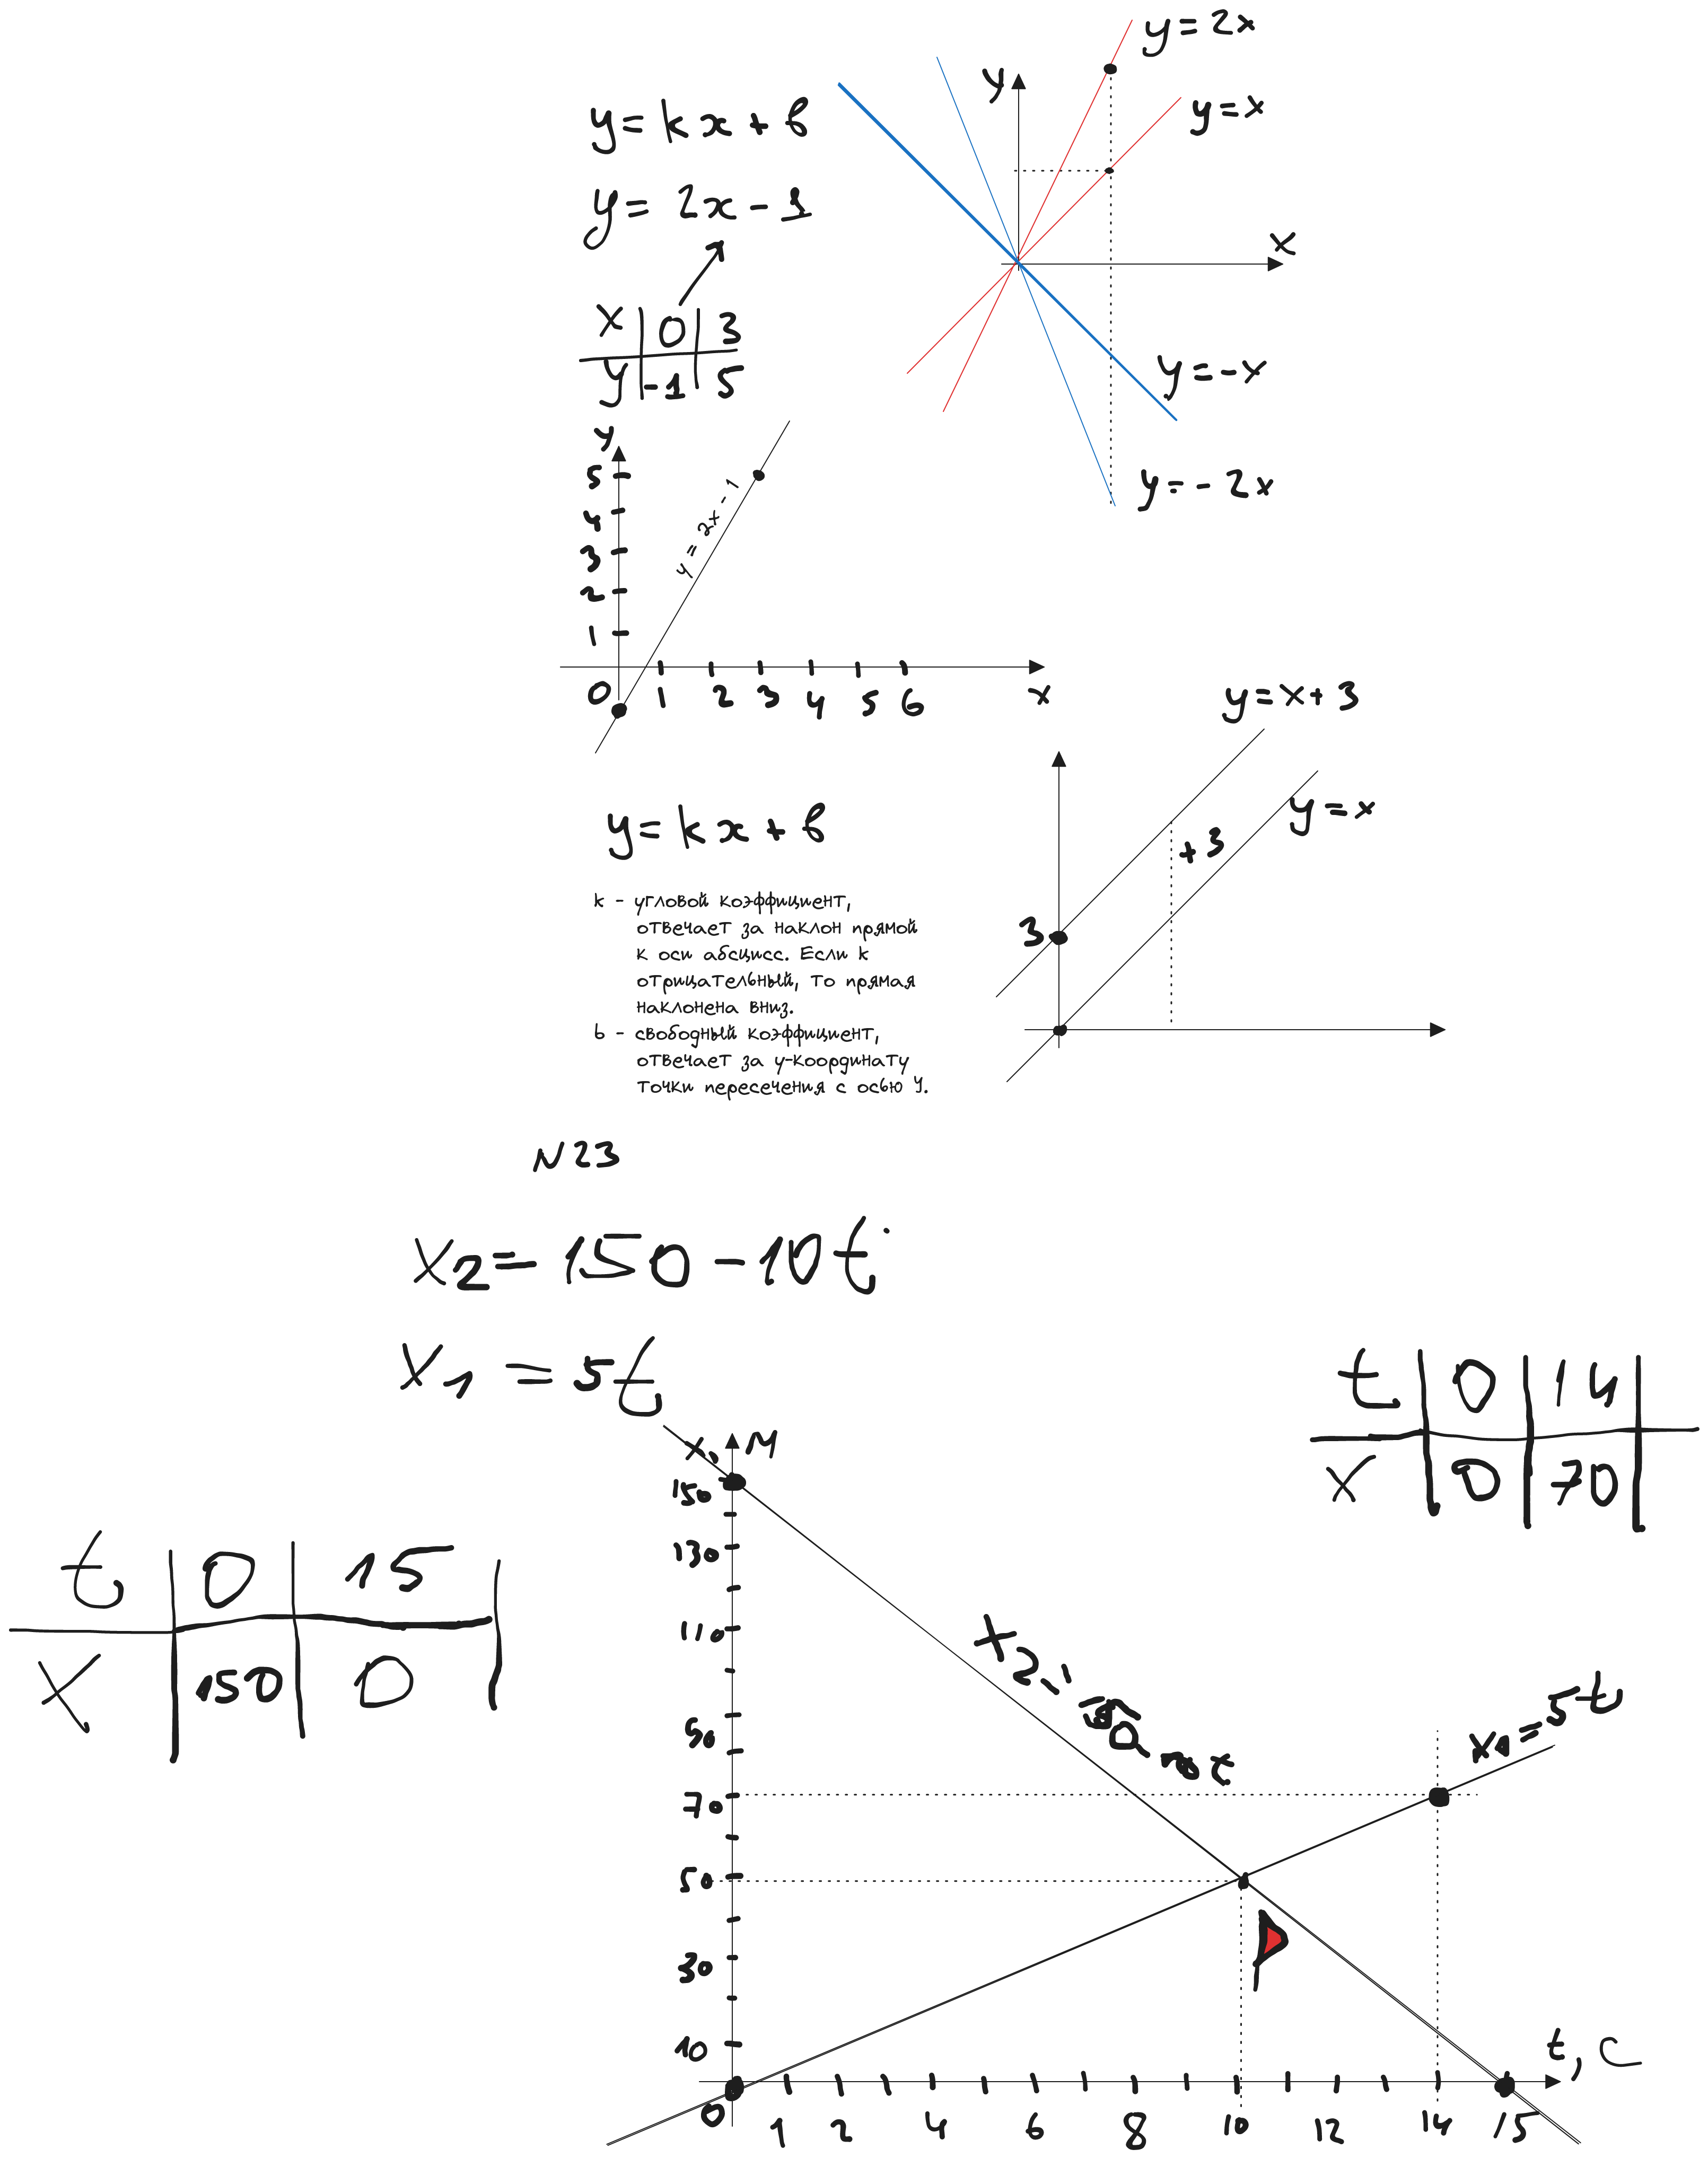 y = 2x
y
y = x
y = kx + b
y = 2x - 1
x
x 0 3
y -1 5
y = -x
y = -2x
y
5
4
3
2
1
y = 2x - 1
0 1 2 3 4 5 6 x
y = x + 3
y = x
+3
3
y = kx + b
k - угловой коэффициент,
отвечает за наклон прямой
к оси абсцисс. Если k
отрицательный, то прямая
наклонена вниз.
b - свободный коэффициент,
отвечает за y-координату
точки пересечения с осью y.
N23
x2 = 150 - 10t
x1 = 5t
t 0 14
x 0 70
t 0 15
x 150 0
x, м
150
130
110
90
70
50
30
10
x2 = 150 - 10t
x1 = 5t
t, с
0 1 2 4 6 8 10 12 14 15